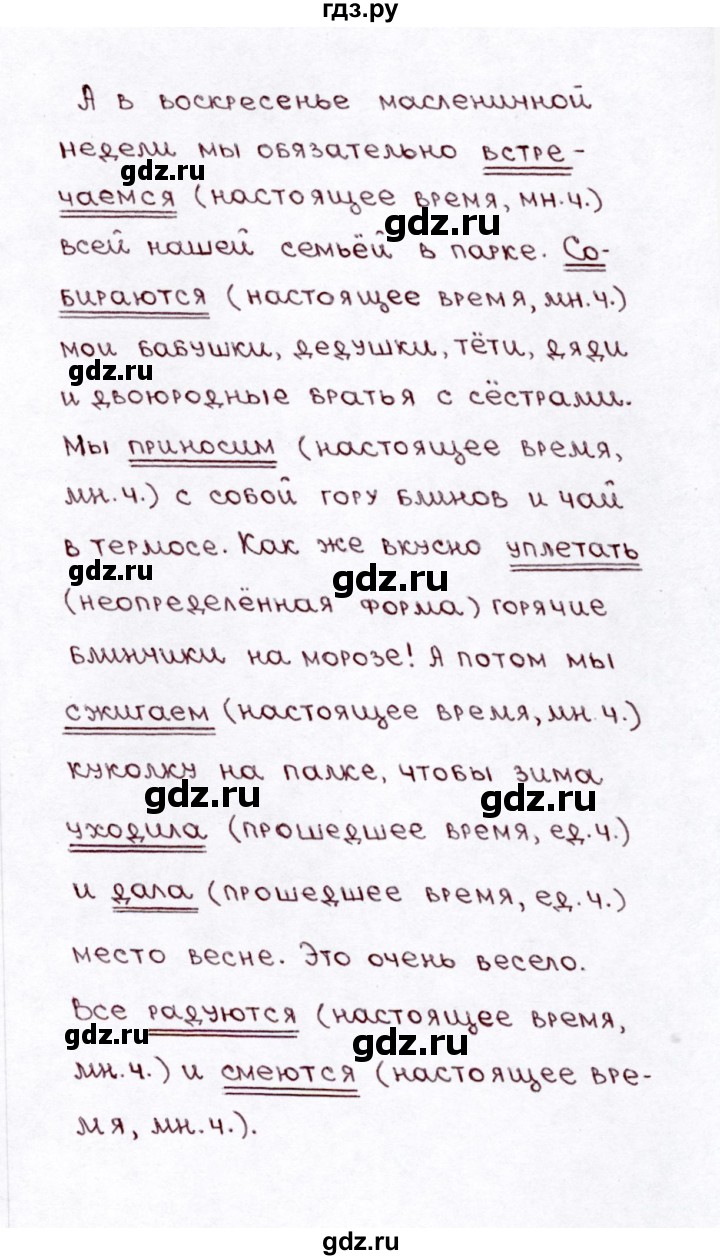 гдз.ру
А в воскресенье масленичной
недели мы обязательно встре-
gdz.ru
чаемся (настоящее время, мн.ч.)
gdz.ru
всей нашей семьёй в парке. Со-
бираются (настоящее время, мн.ч.)
мои бабушки, дедушки, тёти, дяди
gdz.ru
и двоюродные братья с сёстрами.
Мы приносим (настоящее время,
мн.ч.) с собой гору блинов и чай
в термосе. Как же вкусно уплетать
gdz.ru gdz.ru
(неопределённая форма) горячие
блинчики на морозе! А потом мы
сжигаем (настоящее время, мн.ч.)
куколку на палке, чтобы зима
gdz.ru gdz.ru
уходила (прошедшее время, ед.ч.)
и дала (прошедшее время, ед.ч.)
место весне. Это очень весело.
Все радуются (настоящее время,
gdz.ru gdz.ru
мн.ч.) и смеются (настоящее вре-
мя, мн.ч.).
gdz.ru